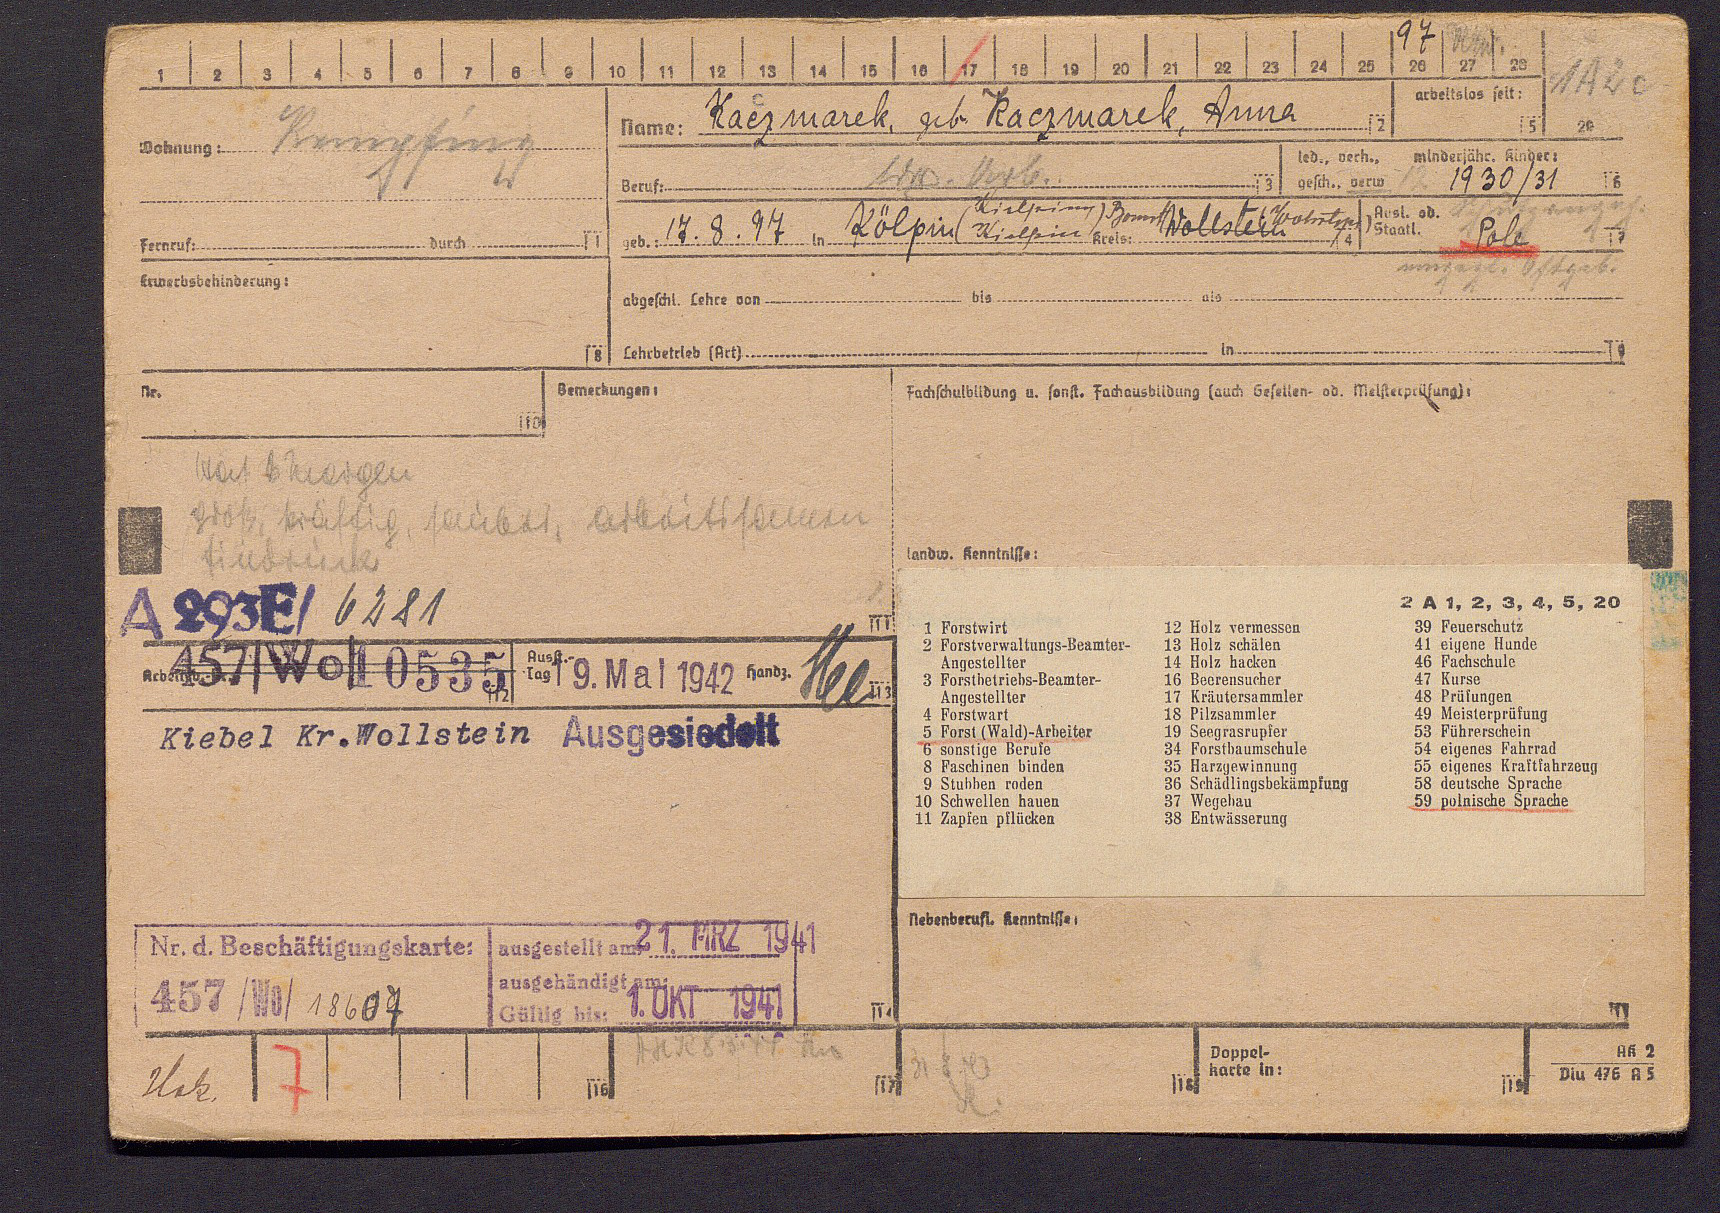 97
1 2 3 4 5 6 7 8 9 10 11 12 13 14 15 16 17 18 19 20 21 22 23 24 25 26 27 28
1A2c
29
Wohnung:
Fernruf: durch 1
Name: Kaczmarek, geb. Kaczmarek, Anna 2
arbeitslos seit: 5
Beruf: 3
led., verh., gesch., verw
minderjähr. Kinder:
1930/31 6
geb.: 17.8.97 in Kölpin (Kielpin) Bomst Kreis: Wollstein 4
Ausl. od. Staatl. Pole 7
eingegl. Ostgeb.
Erwerbsbehinderung:
8
abgeschl. Lehre von bis als
Lehrbetrieb (Art) in 9
Nr.
10
Bemerkungen:
Fachschulbildung u. sonst. Fachausbildung (auch Gesellen- od. Meisterprüfung):
groß, kräftig, sauber, arbeitsamen
Eindruck
11
landw. Kenntnisse:
A 293E/ 6281
457/Wo/10535
12
Ausst.-Tag 19. Mai 1942 Handz.
13
Kiebel Kr.Wollstein Ausgesiedelt
2 A 1, 2, 3, 4, 5, 20
1 Forstwirt
2 Forstverwaltungs-Beamter-
Angestellter
3 Forstbetriebs-Beamter-
Angestellter
4 Forstwart
5 Forst (Wald)-Arbeiter
6 sonstige Berufe
8 Faschinen binden
9 Stubben roden
10 Schwellen hauen
11 Zapfen pflücken
12 Holz vermessen
13 Holz schälen
14 Holz hacken
16 Beerensucher
17 Kräutersammler
18 Pilzsammler
19 Seegrasrupfer
34 Forstbaumschule
35 Harzgewinnung
36 Schädlingsbekämpfung
37 Wegebau
38 Entwässerung
39 Feuerschutz
41 eigene Hunde
46 Fachschule
47 Kurse
48 Prüfungen
49 Meisterprüfung
53 Führerschein
54 eigenes Fahrrad
55 eigenes Kraftfahrzeug
58 deutsche Sprache
59 polnische Sprache
Nebenberufl. Kenntnisse:
Nr. d. Beschäftigungskarte:
457/Wo/ 18607
ausgestellt am: 21. MRZ 1941
ausgehändigt am:
Gültig bis: 1. OKT 1941
14
7
16
17
18
Doppel-
karte in:
19
AK 2
Diu 476 A 5